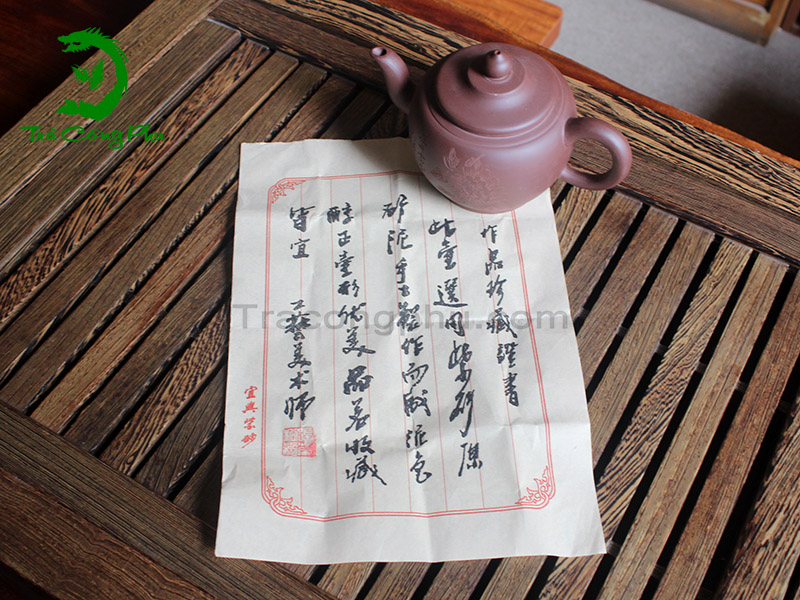 Trà Công Phu
作品珍藏證書
此壶選用紫砂原
矿泥手工製作而成泥色
醇正壶形优美品茗收藏
皆宜 工艺美术师
宜興紫砂
Tracongphu.com